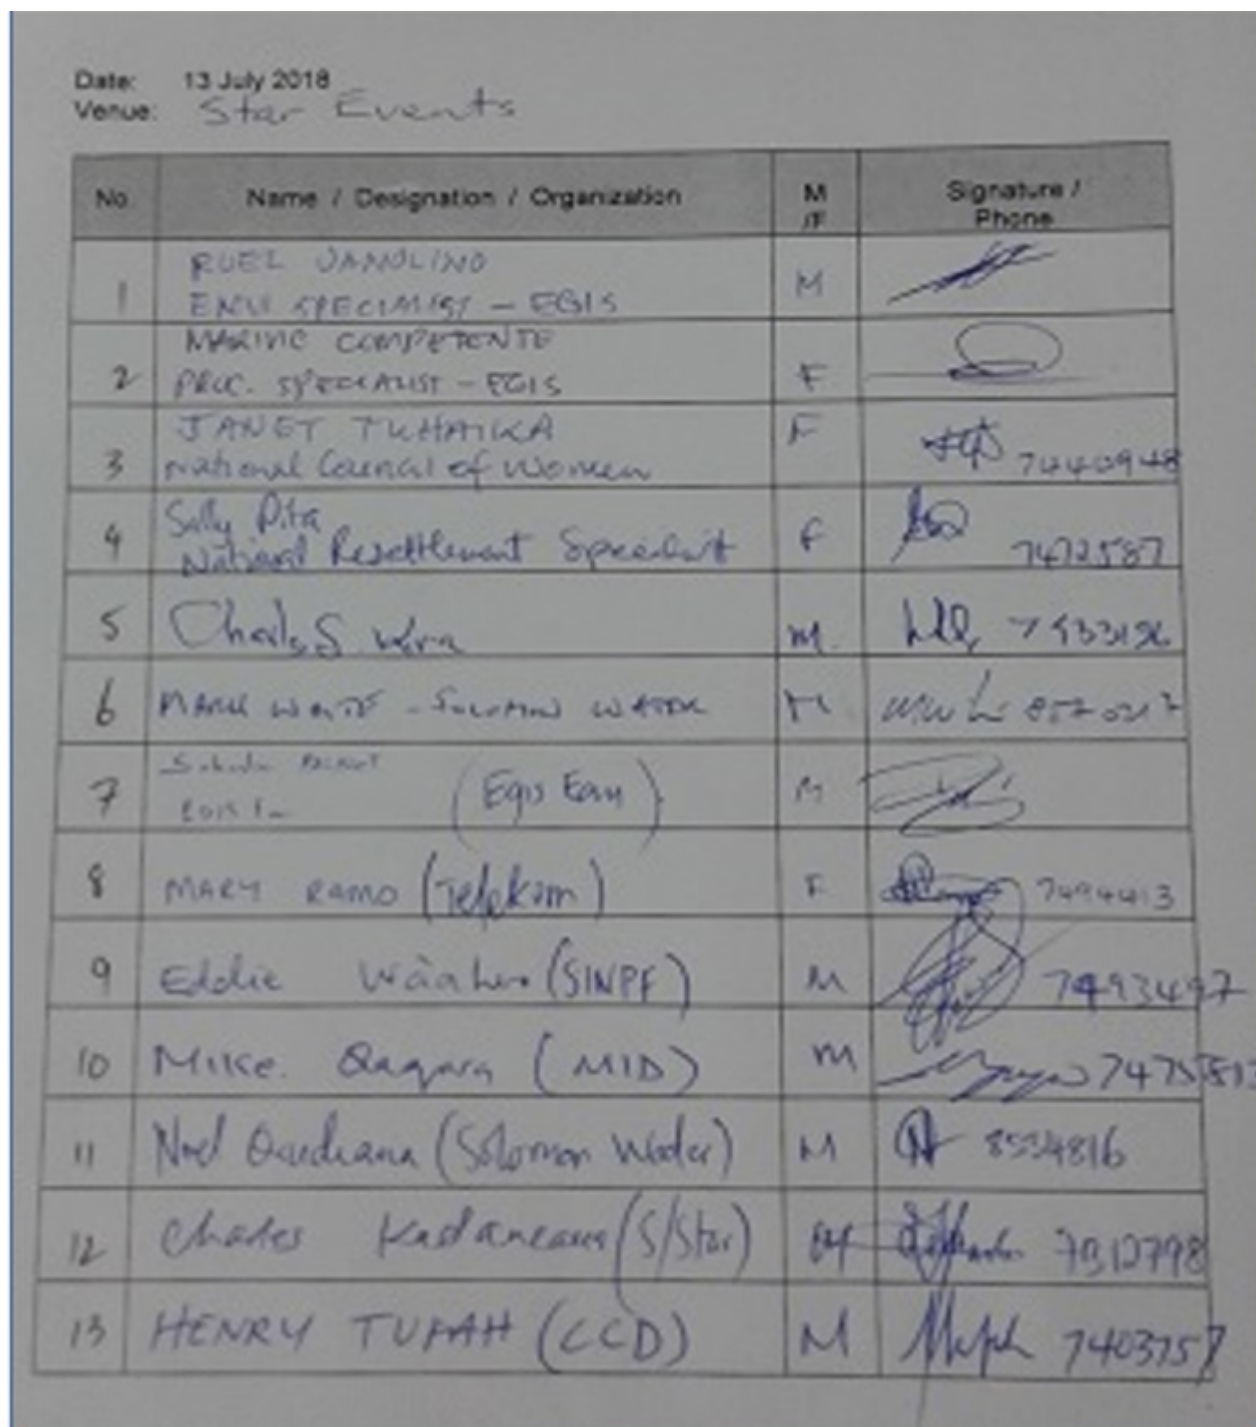 Date: 13 July 2018
Venue: Star Events
No Name / Designation / Organization M /F Signature / Phone
1 RUEL JAMOLINO M
ENVI SPECIALIST - EGIS
2 MARIVIC COMPETENTE
PROC. SPECIALIST - EGIS F
3 JANET TUHAIKA F
National Council of Women 7440948
4 Sally Pita F
National Resettlement Specialist 7472587
5 Charles S. M.
6 MARK - SOLOMON WATER M
7 (Egis Eau) M
8 MARY RAMO (Telekom) F 7494413
9 Eddie (SINPF) M 7493497
10 Mike. Qaqara (MID) M
11 Noel (Solomon Water) M 8554816
12 Charles (S/Star) M 7312798
13 HENRY TUFAH (CCD) M 7403757